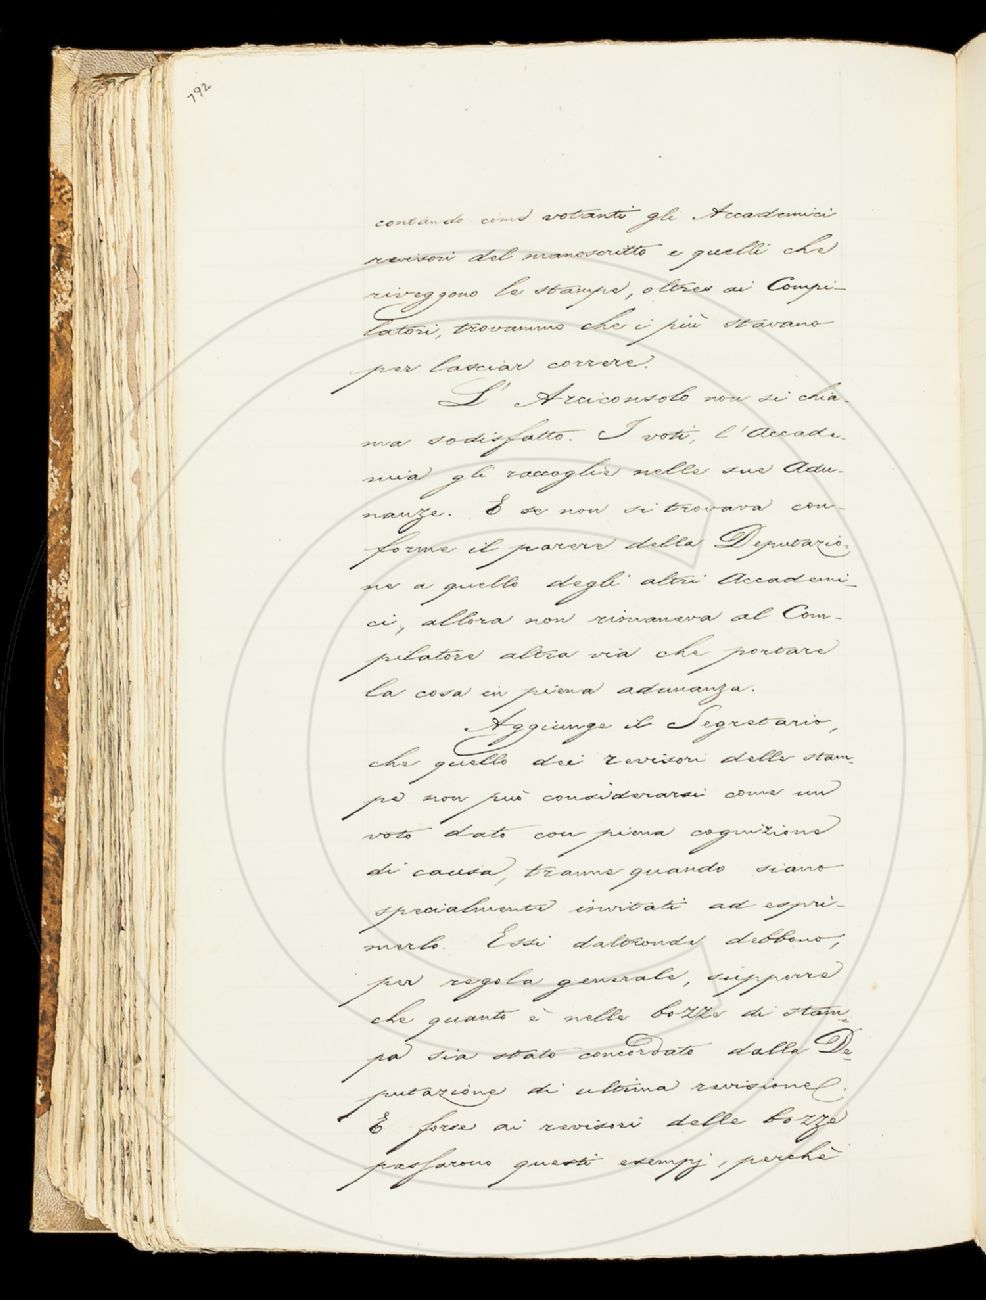 792
contando come votanti gli Accademici
revisori del manoscritto e quelli che
riveggono le stampe, oltre ai Compi-
latori, trovammo che i più stavano
per lasciar correre.
L' Arciconsolo non si chia-
ma sodisfatto. I voti, l'Accade-
mia gli raccoglie nelle sue Adu-
nanze. E se non si trovava con-
forme il parere della Deputazio-
ne a quello degli altri Accademi-
ci, allora non rimaneva al Com-
pilatore altra via che portare
la cosa in piena adunanza.
Aggiunge il Segretario,
che quello dei revisori delle stam-
pe non può considerarsi come un
voto dato con piena cognizione
di causa, tranne quando siano
specialmente invitati ad espri-
merlo. Essi daltronde debbono,
per regola generale, supporre
che quanto è nelle bozze di stam-
pa sia stato concordato dalla De-
putazione di ultima revisione.
E forse ai revisori delle bozze
passarono questi esempj, perchè